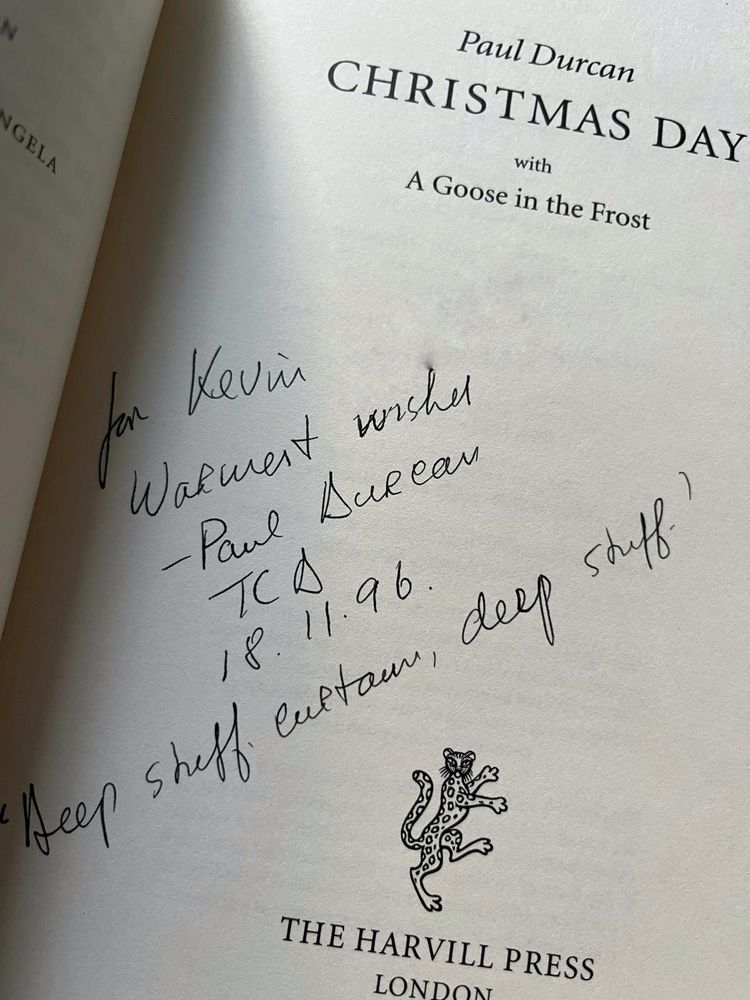 N
NGELA
Paul Durcan
CHRISTMAS DAY
with
A Goose in the Frost
for Kevin
Warmest wishes
– Paul Durcan
TCD
18.11.96.
"Deep stuff. curtains, deep stuff."
THE HARVILL PRESS
LONDON